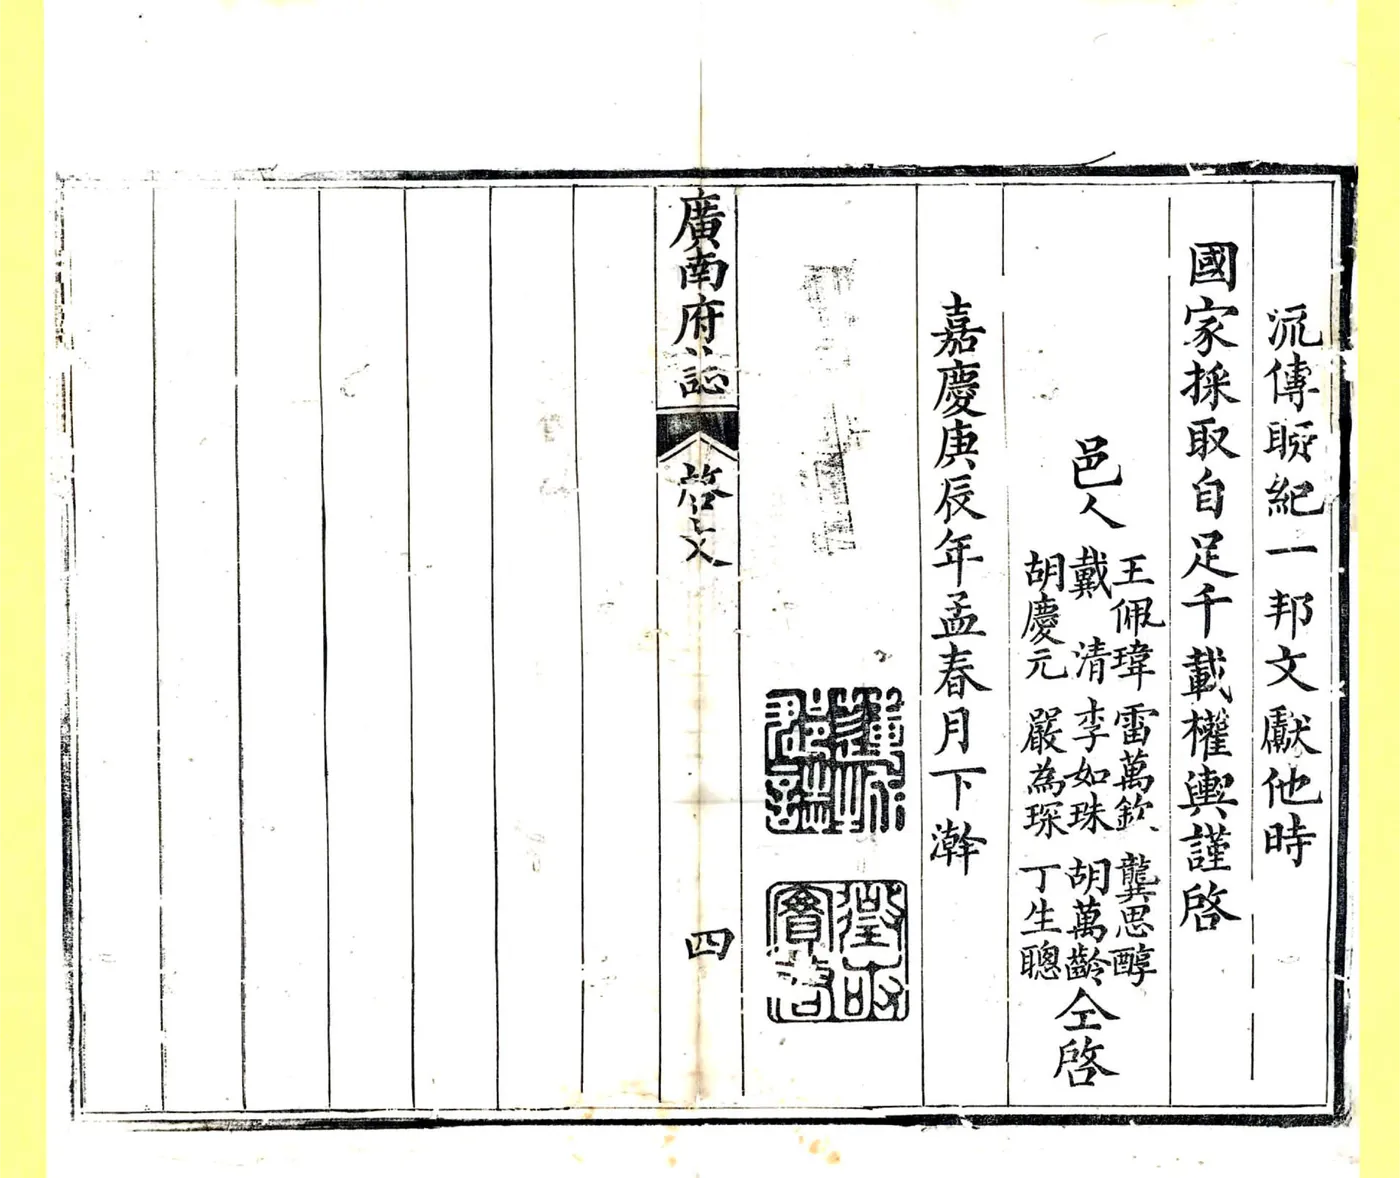 流傳聊紀一邦文獻他時
國家採取自足千載權輿謹啓
邑人
王佩瑋 雷萬欽 龔思醇
戴清 李如珠 胡萬齡
胡慶元 嚴為琛 丁生聰
仝啓
嘉慶庚辰年孟春月下澣
廣南府誌
啓文
四